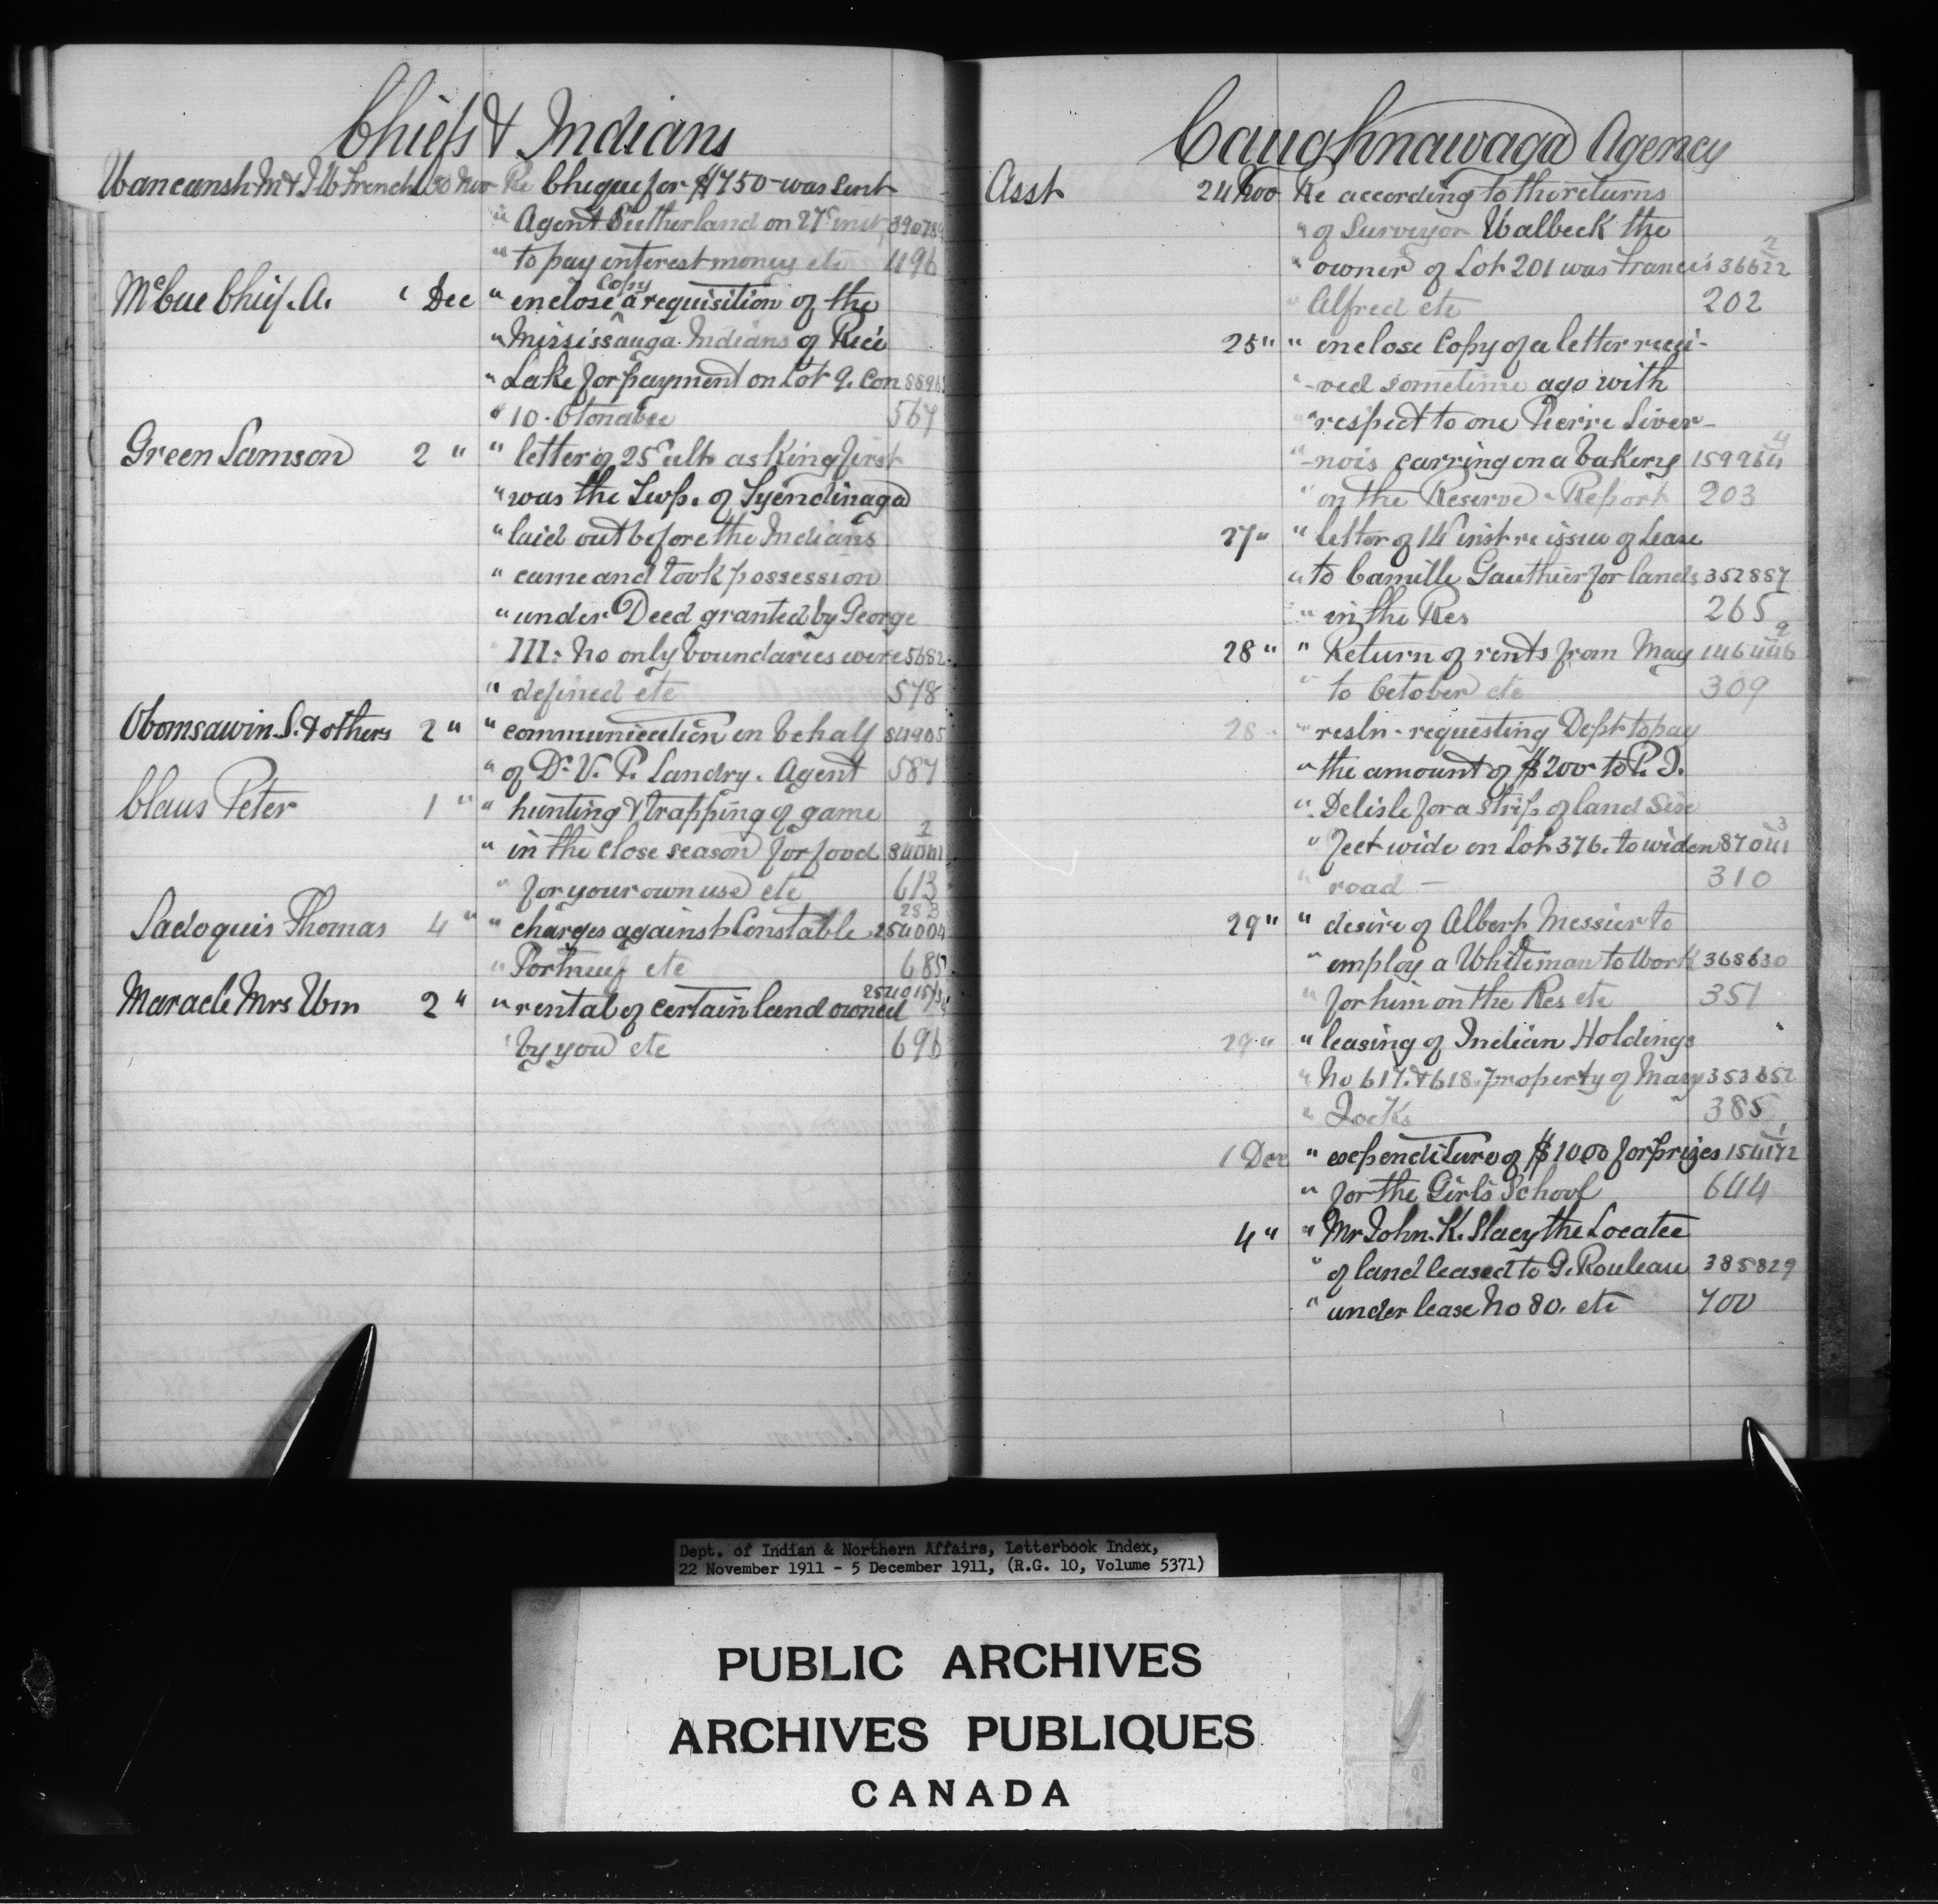 Chiefs & Indians
Wancansh M & J. W French 30 Nov Re Cheque for $750 was sent
" Agent Sutherland on 27th inst 390789
" to pay interest money etc 496
McCue Chief. A. 1 Dec " enclose copy a requisition of the
" Mississauga Indians of Rice
" Lake for payment on Lot 9. Con
" 10. Otonabee 567
Green Samson 2 " " letter of 25th ult asking first
" was the Twp. of Tyendinaga
" laid out before the Indians
" came and took possession
" under Deed granted by George
III. No only boundaries were 5682
" defined etc 578
Obomsawin. S. & others 2 " " communication on behalf 84905
" of Dr. V. P. Landry. Agent 587
Claus Peter 1 " " hunting & trapping of game
" in the close season for food
" for your own use etc 613
Sadoquis Thomas 4 " " charges against Constable 254004
" Portneuf etc 685
Maracle Mrs Wm 2 " " rental of certain land owned
by you etc 696
Caughnawaga Agency
Asst 24 Nov Re according to the returns
" of Surveyor Walbeck the
" owner of Lot 201 was Francis 36622
" Alfred etc 202
25 " " enclose Copy of a letter recei-
" -ved sometime ago with
" respect to one Pierre Liver-
" -nois carring on a bakery 159964
" on the Reserve - Report 203
27 " " letter of 14th inst re issue of Lease
" to Camille Gauthier for lands 352887
" in the Res 265
28 " " Return of rents from May 146446
" to October etc 309
28 " " resln - requesting Dept to pay
" the amount of $200 to P. J.
" Delisle for a strip of land Six
" feet wide on Lot 376. to widen 87041
" road - 310
29 " " desire of Albert Messier to
" employ a Whiteman to Work 368630
" for him on the Res etc 351
29 " " leasing of Indian Holdings
" No 617. & 618. property of Mary 353652
" Jocks 385
1 Dec " expenditure of $1000 for prizes 154172
" for the Girls School 644
4 " " Mr John. K. Stacy the Locatee
" of land leased to G. Rouleau 385829
" under lease No 80. etc 700
Dept. of Indian & Northern Affairs, Letterbook Index,
22 November 1911 - 5 December 1911, (R.G. 10, Volume 5371)
PUBLIC ARCHIVES
ARCHIVES PUBLIQUES
CANADA